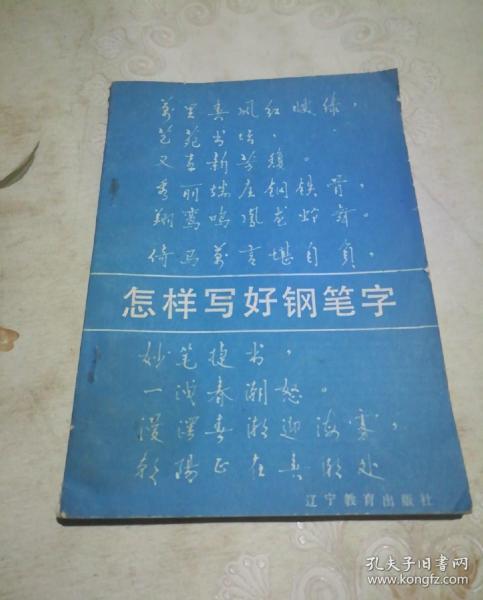 万里春风红嫩绿，
艺苑书坛，
又直新芳穗。
秀丽端庄钢铁骨，
翔鸾鸣凤龙蛇舞。
倚马万言堪自负，
怎样写好钢笔字
妙笔捷书，
一浅春潮怒。
漫深春潮迎海雾，
朝阳正在春潮处
辽宁教育出版社
孔夫子旧书网
www.kongfz.com